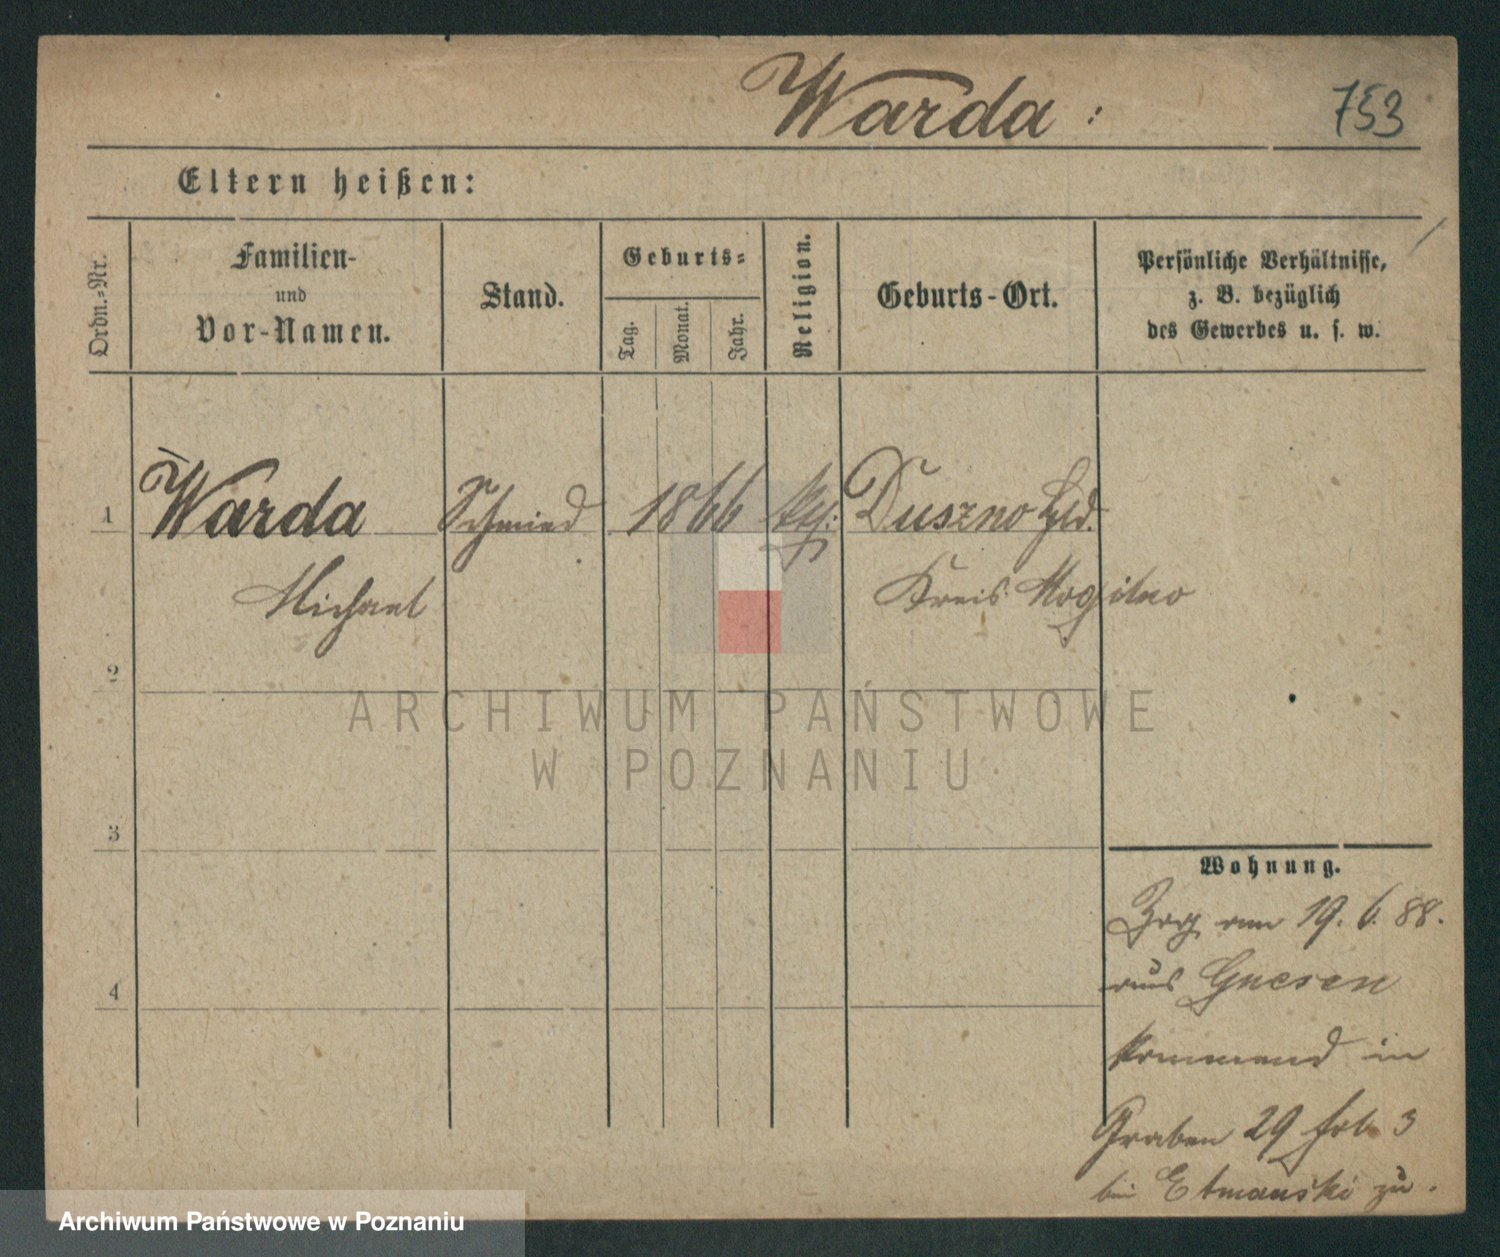 Warda :
753
Eltern heißen:
Ordn.-Nr.
Familien-
und
Vor-Namen.
Stand.
Geburts-
Tag.
Monat.
Jahr.
Religion.
Geburts-Ort.
Persönliche Verhältnisse,
z. B. bezüglich
des Gewerbes u. s. w.
1 Warda Schmied 1866 kth: Duszno
Michael Kreis Mogilno
2
3
4
Wohnung.
Zog am 19. 6. 88.
aus Gnesen
kommend in
Graben 29 3
bei Etmański zu.
ARCHIWUM PAŃSTWOWE
W POZNANIU
Archiwum Państwowe w Poznaniu